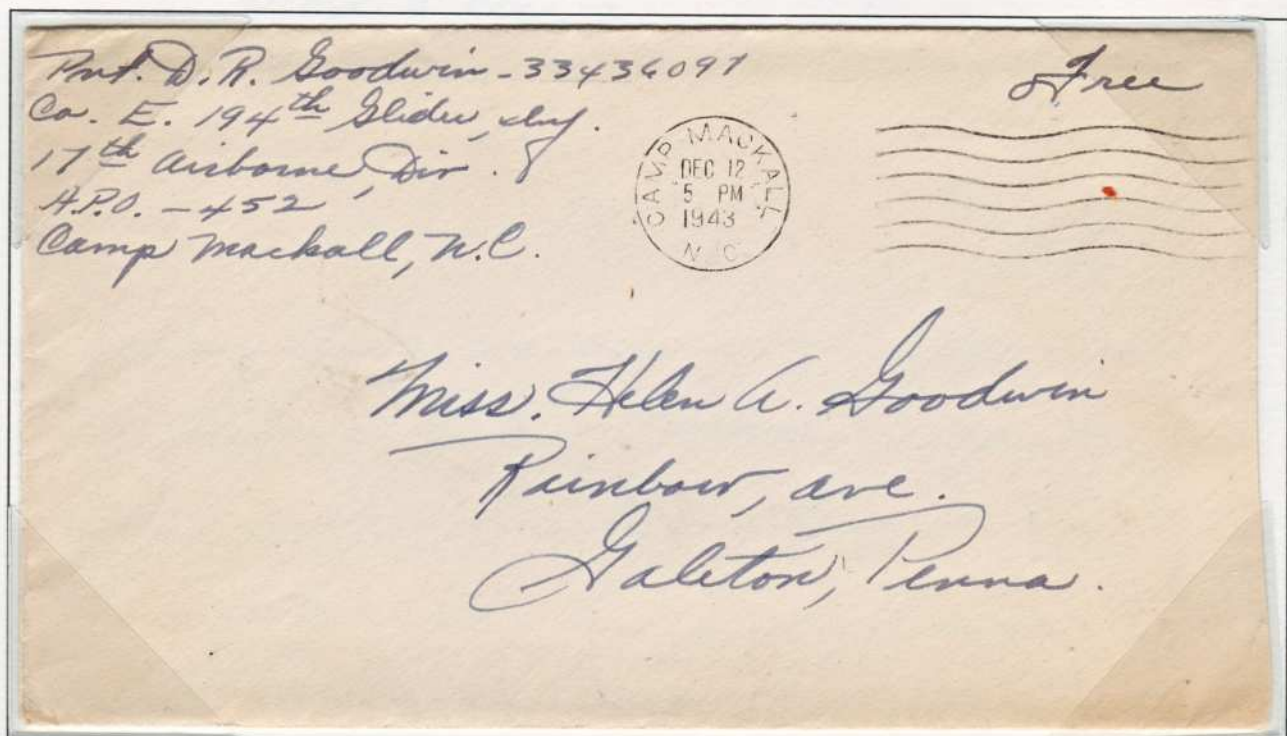 Pvt. D. R. Goodwin - 33436097
Co. E. 194th Glider, Inf.
17th Airborne, Div.
A.P.O. - 452
Camp Mackall, N.C.
Free
CAMP MACKALL
DEC 12
5 PM
1943
N.C.
Miss. Helen A. Goodwin
Rainbow, ave.
Galeton, Penna.